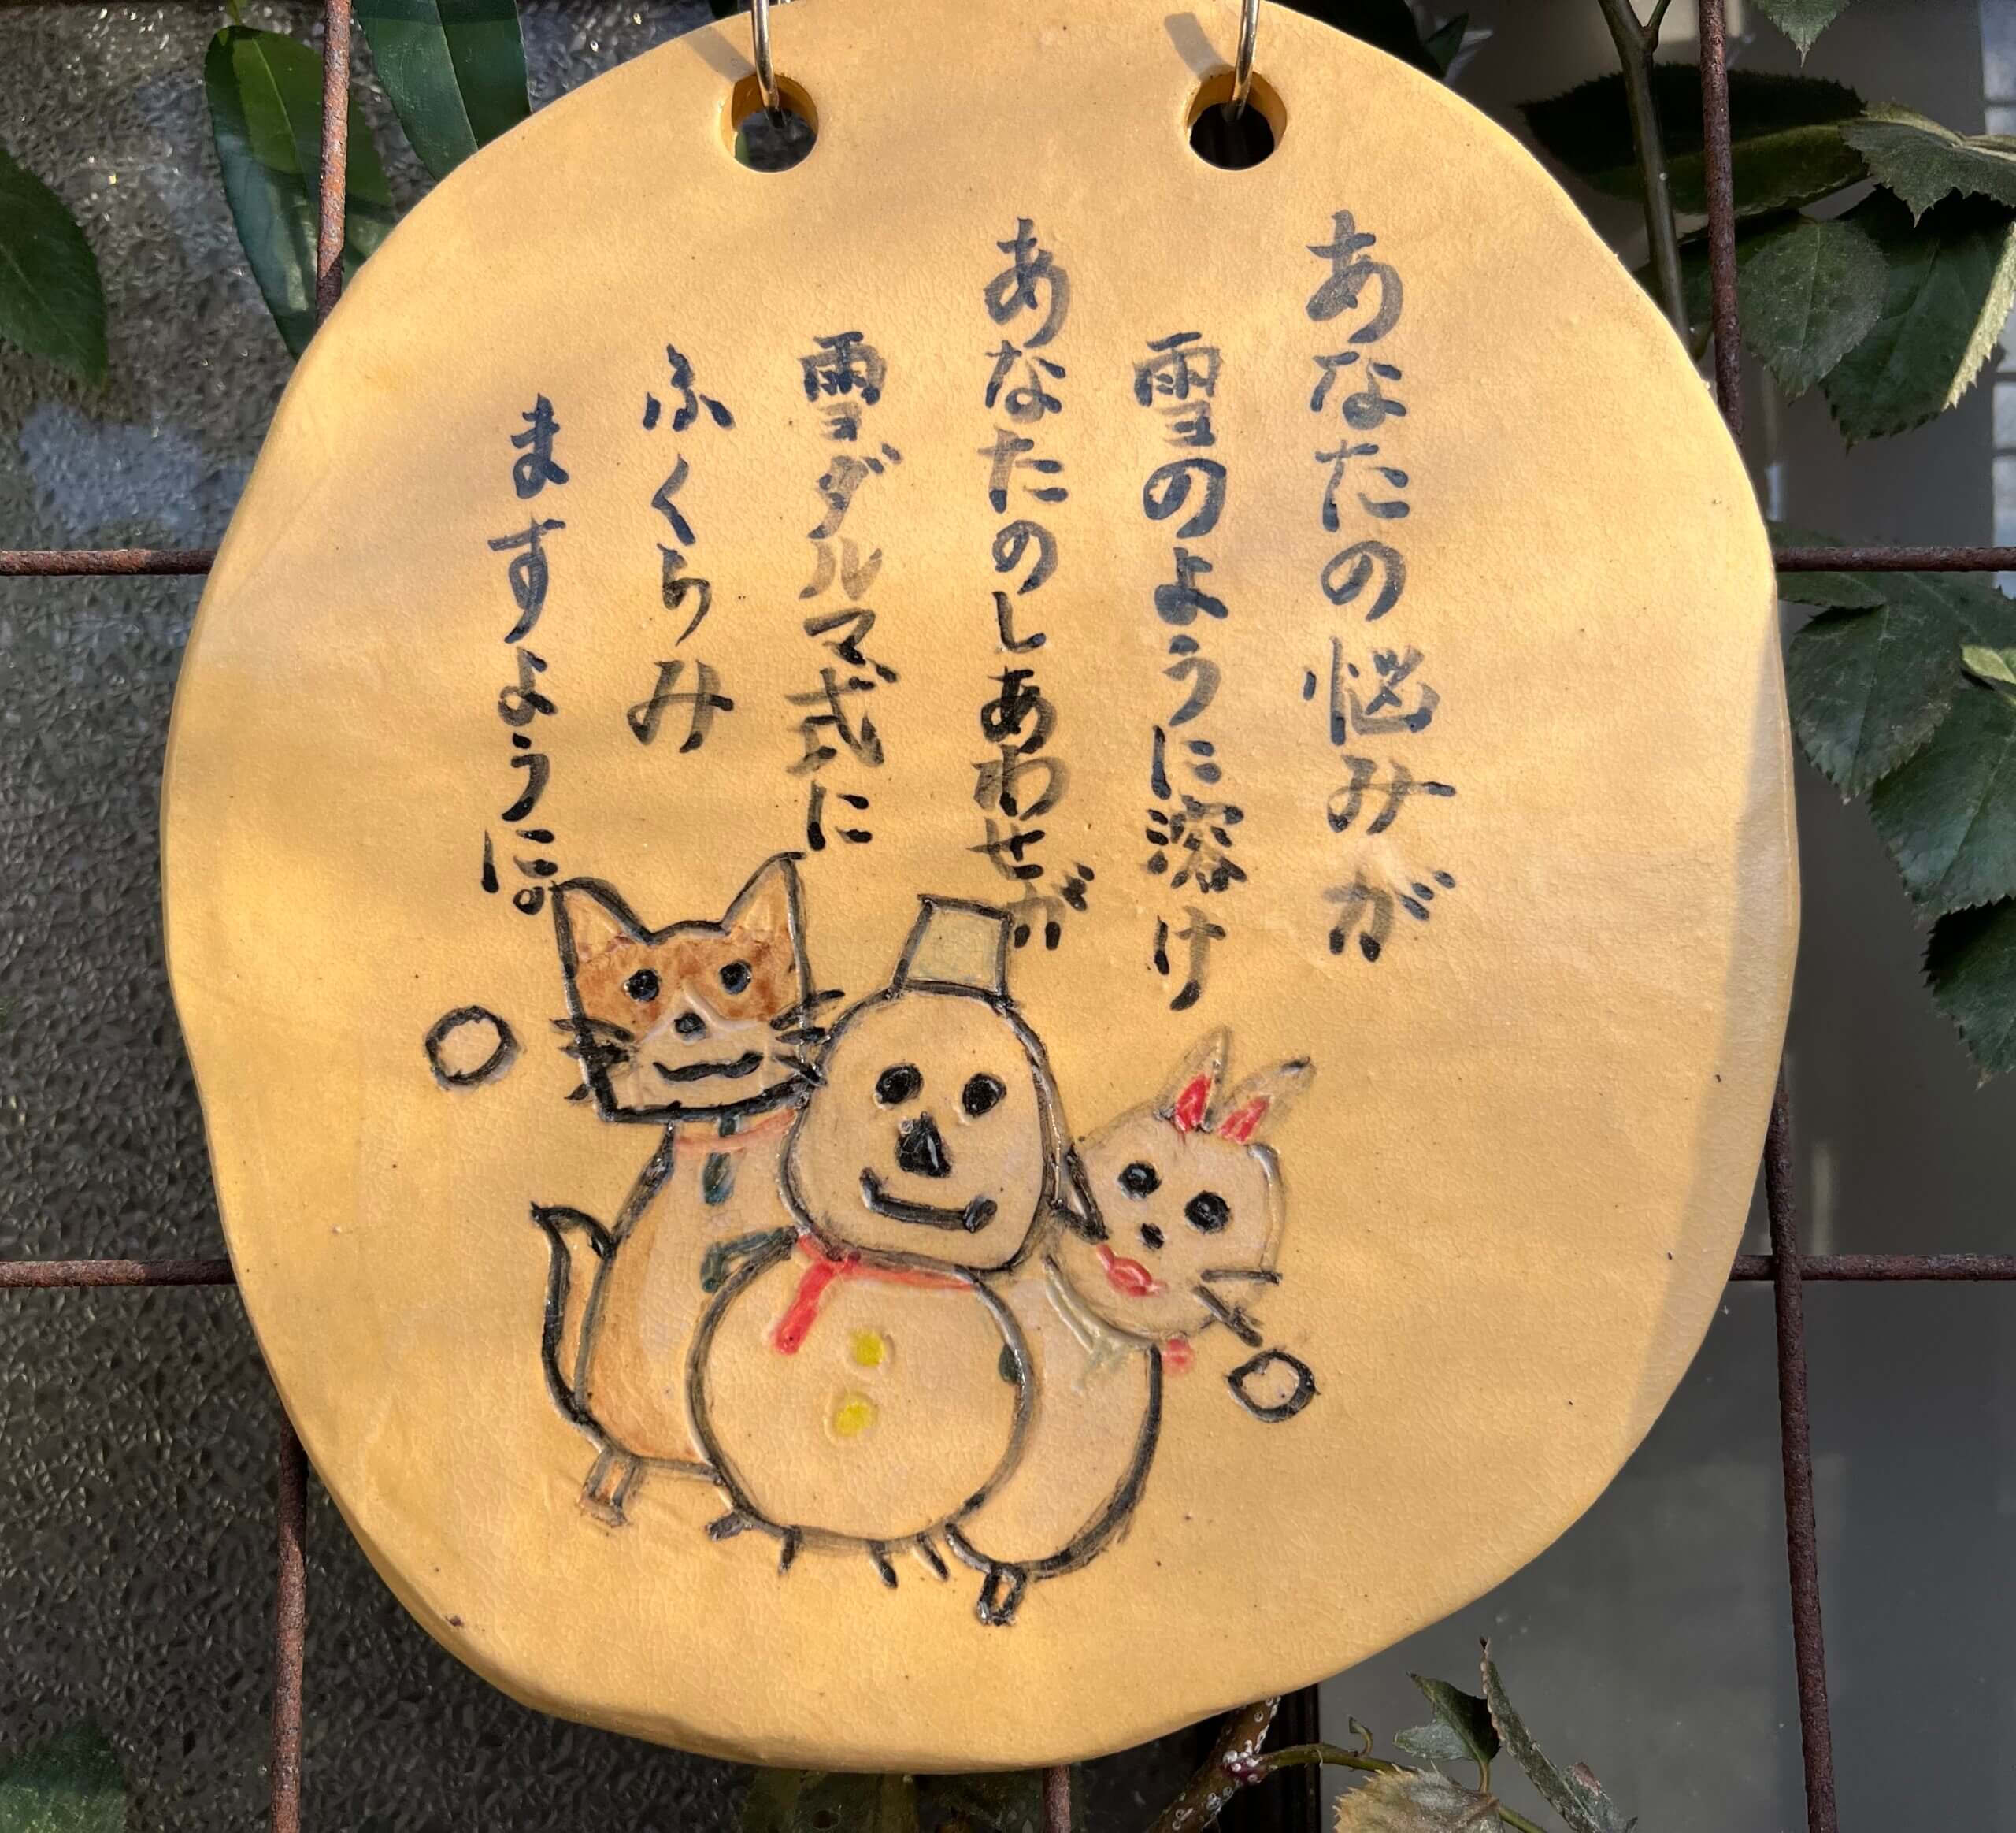 あなたの悩みが
雪のように溶け
あなたのしあわせが
雪ダルマ式に
ふくらみ
ますように。